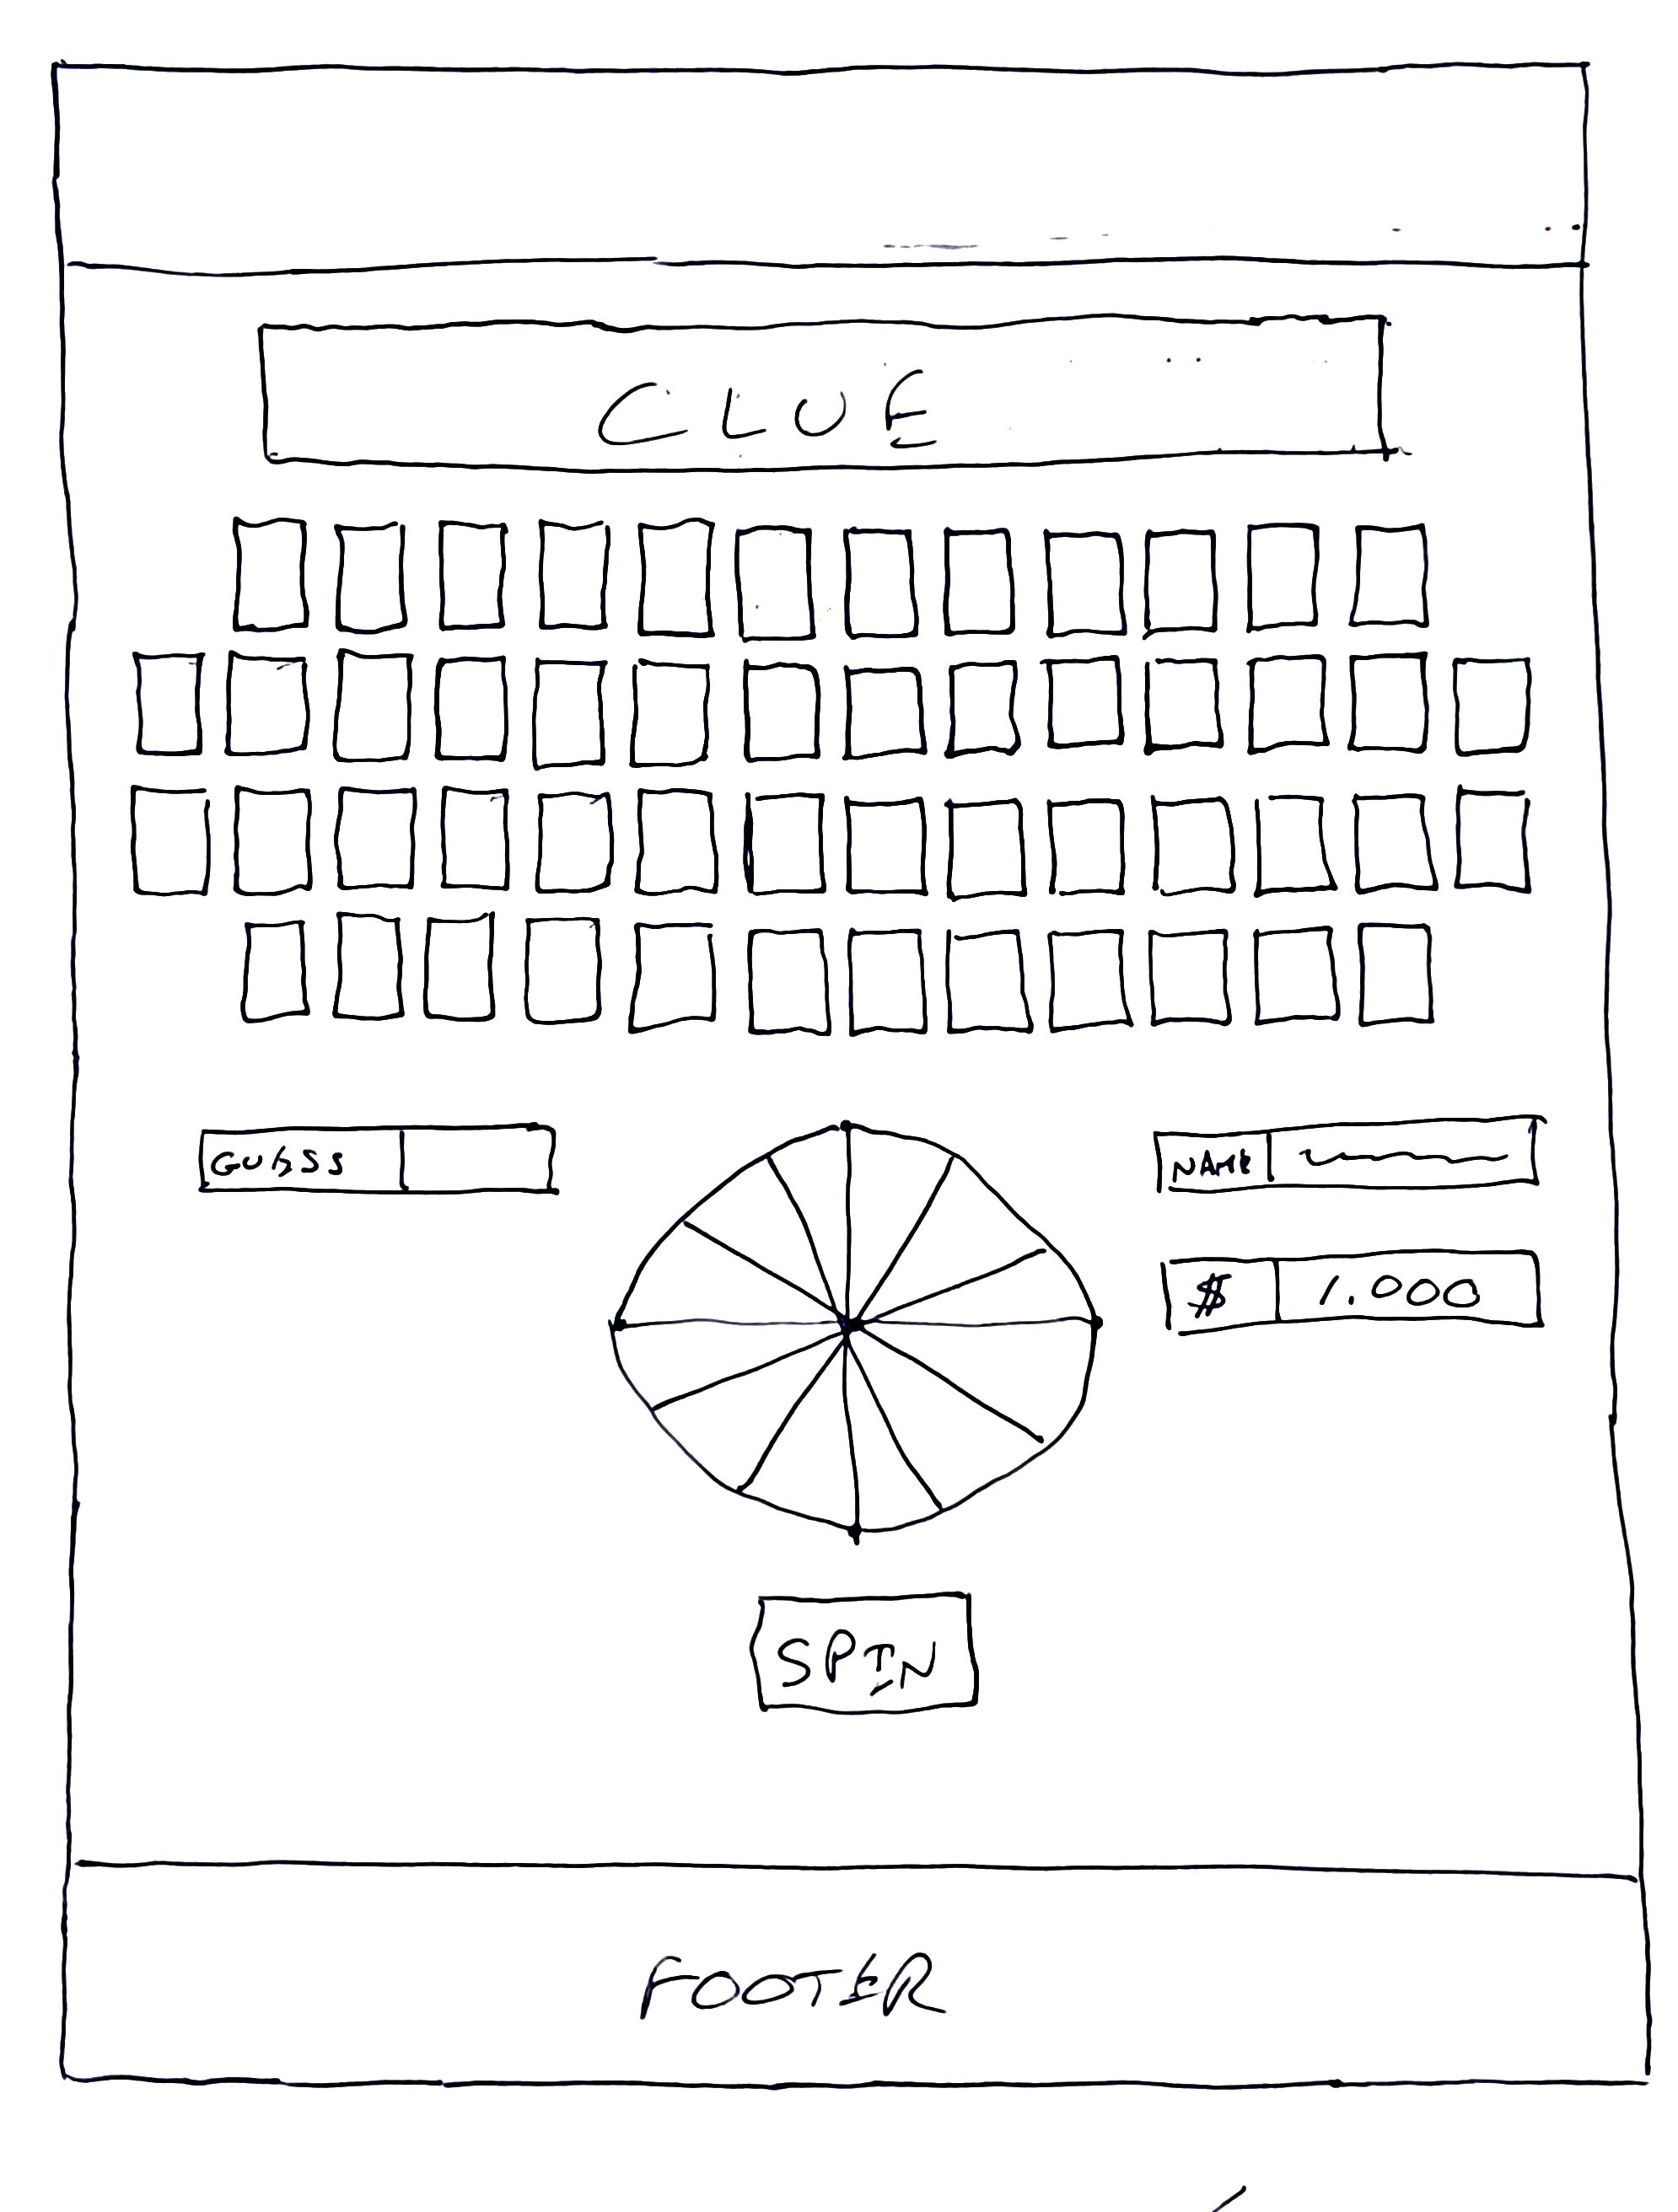 CLUE
GUESS
NAME
$ 1.000
SPIN
FOOTER